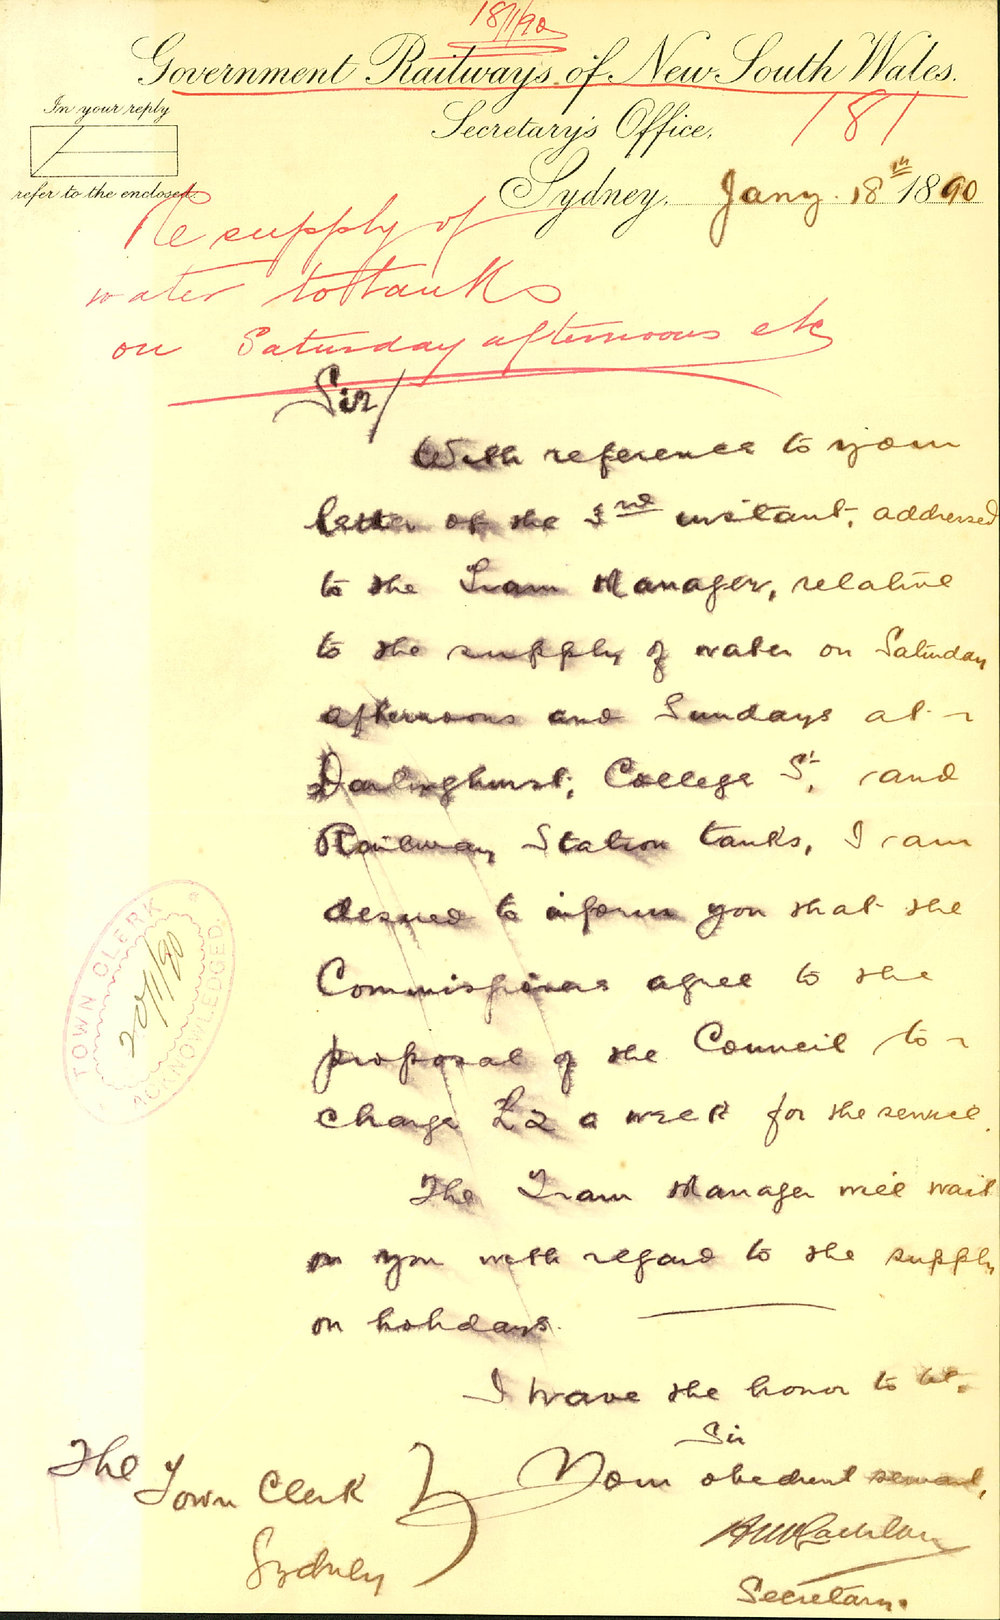 18/1/90
Government Railways of New South Wales.
In your reply
refer to the enclosed.
Secretary's Office.
181
Sydney, Jany. 18th 1890
Re supply of
water to tanks
on Saturday afternoons etc
Sir/
With reference to your
letter of the 3rd instant, addressed
to the Tram Manager, relative
to the supply of water on Saturday
afternoons and Sundays at
Darlinghurst, College St, and
Railway Station tanks, I am
desired to inform you that the
Commissioners agree to the
proposal of the Council to
charge £2 a week for the service.
The Tram Manager will wait
on you with regard to the supply
on holidays.
I have the honor to be,
Sir
Your obedient servant,
H McLachlan
Secretary.
The Town Clerk
Sydney
TOWN CLERK
20/1/90
ACKNOWLEDGED